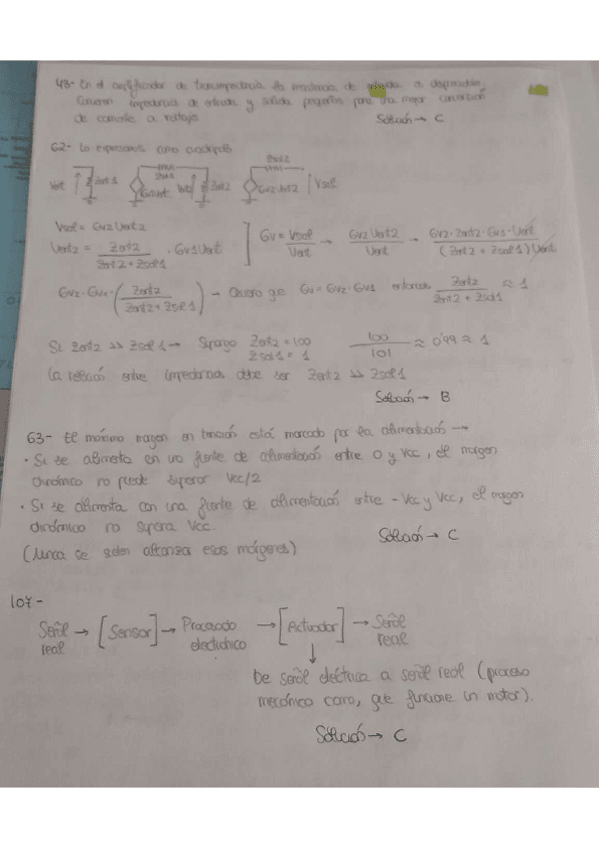 48- En el amplificador de transimpedancia la resistencia de entrada es despreciable.
Conviene impedancia de entrada y salida pequeñas para una mejor conversión
de corriente a voltaje. Solución → C
62- Lo expresamos como cuadripolo
Vent Zent1 Zsal1 Gv1Vent Vent2 Zent2 Zsal2 Gv2·Vent2 Vsal
Vsal = Gv2 Vent2
Vent2 = Zent2 / (Zent2 + Zsal1) · Gv1Vent
Gv = Vsal / Vent → Gv2 Vent2 / Vent → Gv2·Zent2·Gv1·Vent / (Zent2 + Zsal1) Vent
Gv2·Gv1·(Zent2 / (Zent2 + Zsal1)) → Quiero que Gv = Gv2·Gv1 entonces Zent2 / (Zent2 + Zsal1) ≈ 1
Si Zent2 >> Zsal1 → Supongo Zent2 = 100 Zsal1 = 1 100 / 101 ≈ 0'99 ≈ 1
La relación entre impedancias debe ser Zent2 >> Zsal1
Solución → B
63- El máximo margen en tensión está marcado por la alimentación →
· Si se alimenta en una fuente de alimentación entre 0 y Vcc, el margen
dinámico no puede superar Vcc/2
· Si se alimenta con una fuente de alimentación entre -Vcc y Vcc, el margen
dinámico no supera Vcc.
(Nunca se suelen alcanzar esos márgenes) Solución → C
107-
Señal real → [Sensor] → Procesado electrónico → [Actuador] → Señal real
↓
De señal eléctrica a señal real (proceso
mecánico como, que funcione un motor).
Solución → C